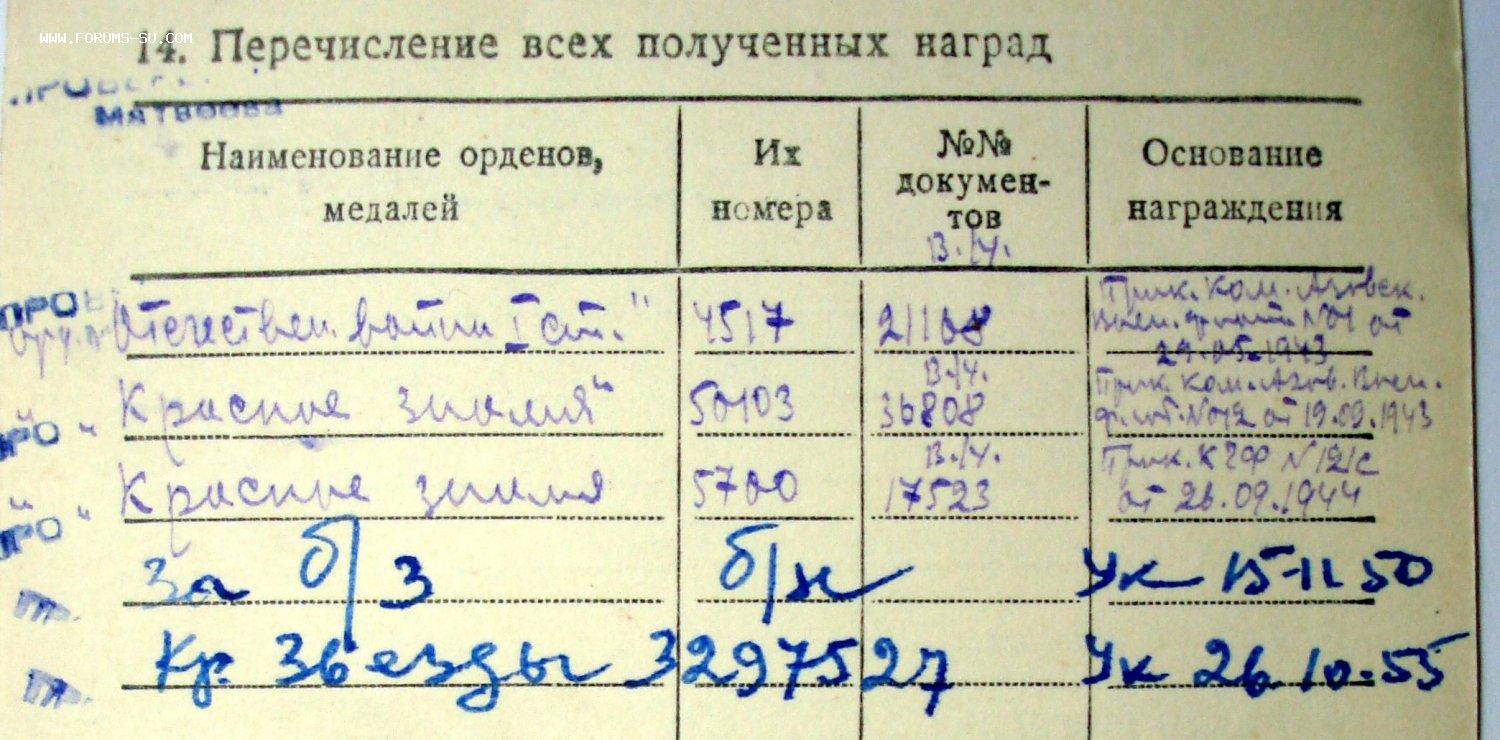 www.forums-su.com
14. Перечисление всех полученных наград
МАТВЕЕВА
Наименование орденов, медалей
Их номера
№№ докумен-
тов
Основание награждения
В./ч.
ПРО
Отечествен. войны I ст." 4517 21108 Прик. Ком. Азовск.
Воен. флот. №01 от
29.05.1943
В./ч.
ПРО " Красное знамя" 50103 36808 Прик. Ком. Азов. Воен.
флот. №012 от 19.09.1943
В./ч.
ПРО " Красное знамя 5700 17523 Прик. К ЧФ N 121с
от 26.09.1944
За б/З б/н Ук 15-11 50
Кр. Звезды 3297527 Ук 26 10.55